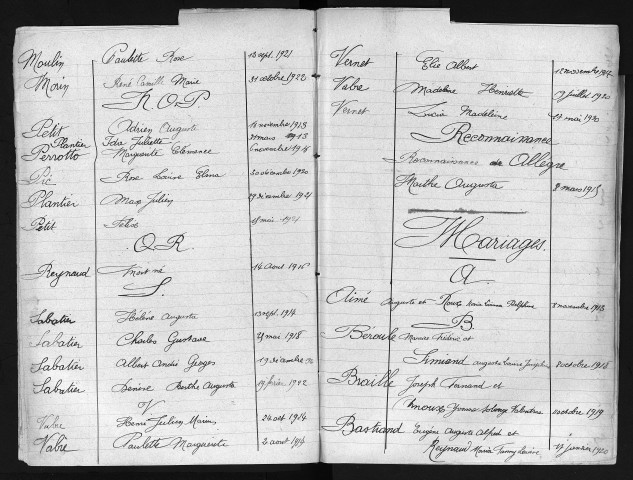 Moulin Paulette Rose 13 sept. 1921
Morin René Camille Marie 31 octobre 1922
N O P.
Petit Adrien Auguste novembre 1913
Plantier Ida Juliette mars 1913
Perrotto Marguerite Clémence 6 novembre
Pic Rose Louise Elena 30 décembre 1920
Plantier Max Julien 29 décembre 1921
Petit mai 1921
Q R.
Reynaud Mort né 14 Aout 1916
S.
Sabatier Hélène Augusta sept. 1914
Sabatier Charles Gustave mai 1918
Sabatier Albert André Georges 19 décembre
Sabatier Berthe Augusta 1922
V
Vabre Henri Julien 24 oct 1914
Vabre Paulette Marguerite 2 aout 1914
Vernet Elie Albert 12 novembre
Vabre Madeleine Henriette juillet 1920
Vernet Lucia Madeleine mai 1920
Reconnaissance
Reconnaissance de Allègre
Marthe Augusta 8 mars 1915
Mariages.
A.
Aimé Auguste et Roux Delphine 8 novembre 1913
B.
Béroule Marius Frédéric et
Simiand Augusta Louise Joséphine 8 octobre 1914
Braille Joseph Fernand et
Arnoux Yvonne Solange Valentine octobre 1919
Bastiand Eugène Auguste Alfred et
Reynaud Maria Fanny Louise 17 janvier 1920